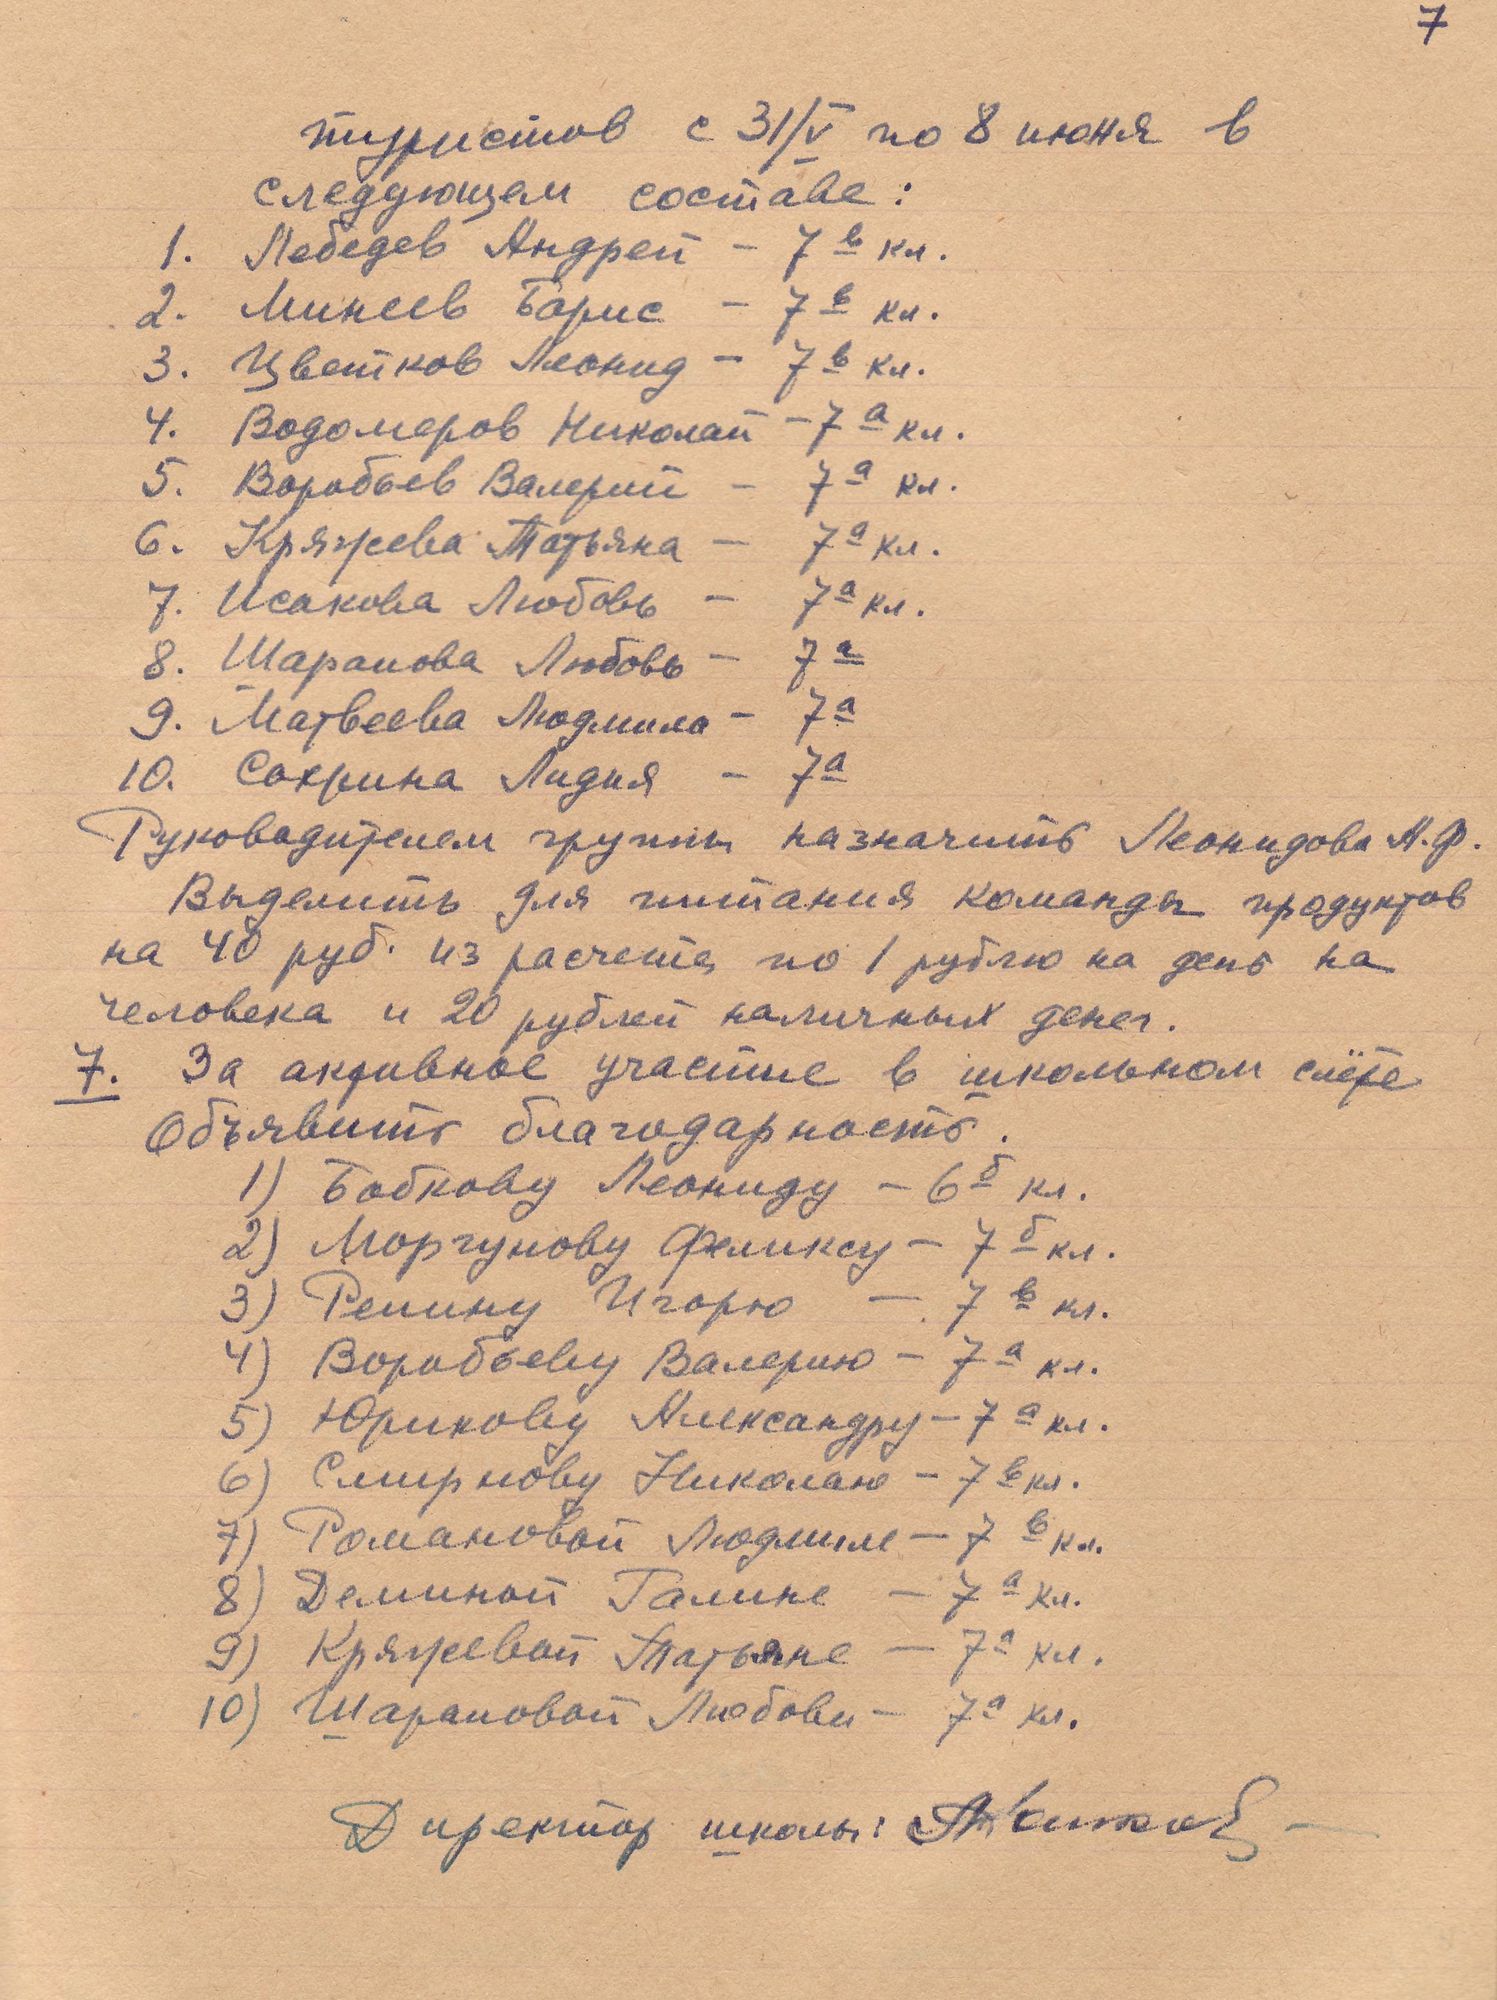 7
туристов с 31/V по 8 июня в
следующем составе:
1. Лебедев Андрей – 7в кл.
2. Минеев Борис – 7в кл.
3. Цветков Леонид – 7в кл.
4. Водомеров Николай – 7а кл.
5. Воробьев Валерий – 7а кл.
6. Кряжева Татьяна – 7а кл.
7. Исакова Любовь – 7а кл.
8. Шарапова Любовь – 7а
9. Матвеева Людмила – 7а
10. Сохрина Лидия – 7а
Руководителем группы назначить Леонидова А.Ф.
Выделить для питания команды продуктов
на 40 руб. из расчета по 1 рублю на день на
человека и 20 рублей наличных денег.
7. За активное участие в школьном слёте
Объявить благодарность.
1) Бобкову Леониду – 6б кл.
2) Моргунову Феликсу – 7б кл.
3) Репину Игорю – 7в кл.
4) Воробьеву Валерию – 7а кл.
5) Юрикову Александру – 7а кл.
6) Смирнову Николаю – 7в кл.
7) Романовой Людмиле – 7в кл.
8) Деминой Галине – 7а кл.
9) Кряжевой Татьяне – 7а кл.
10) Шараповой Любови – 7а кл.
Директор школы: